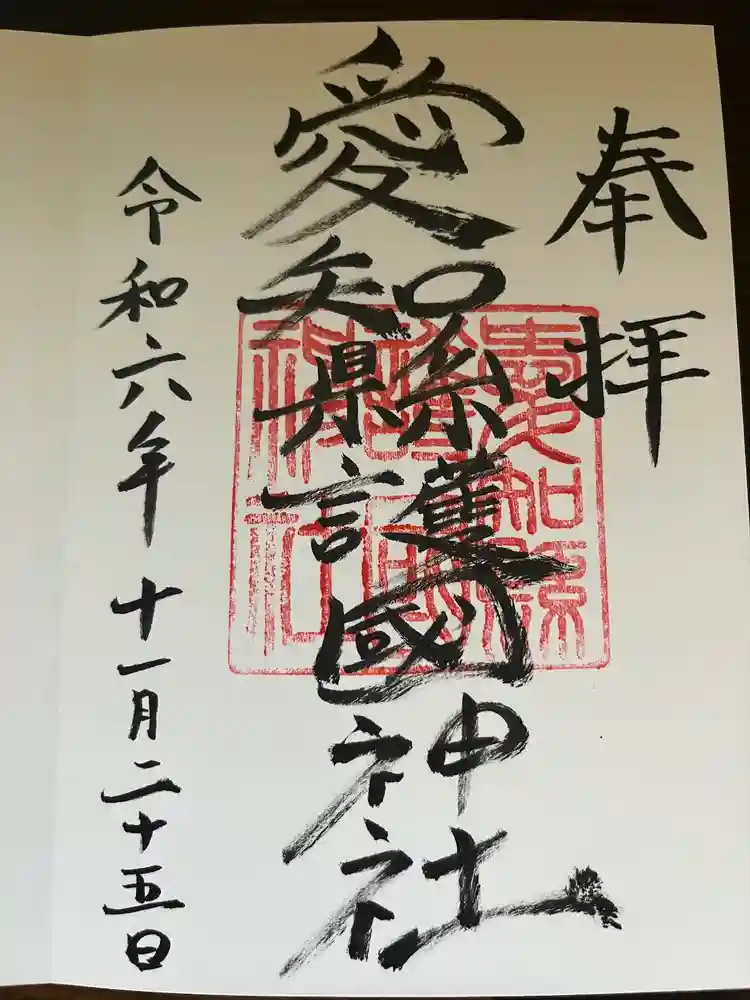 奉拝
愛知縣護國神社
愛知縣護國神社
令和六年十一月二十五日